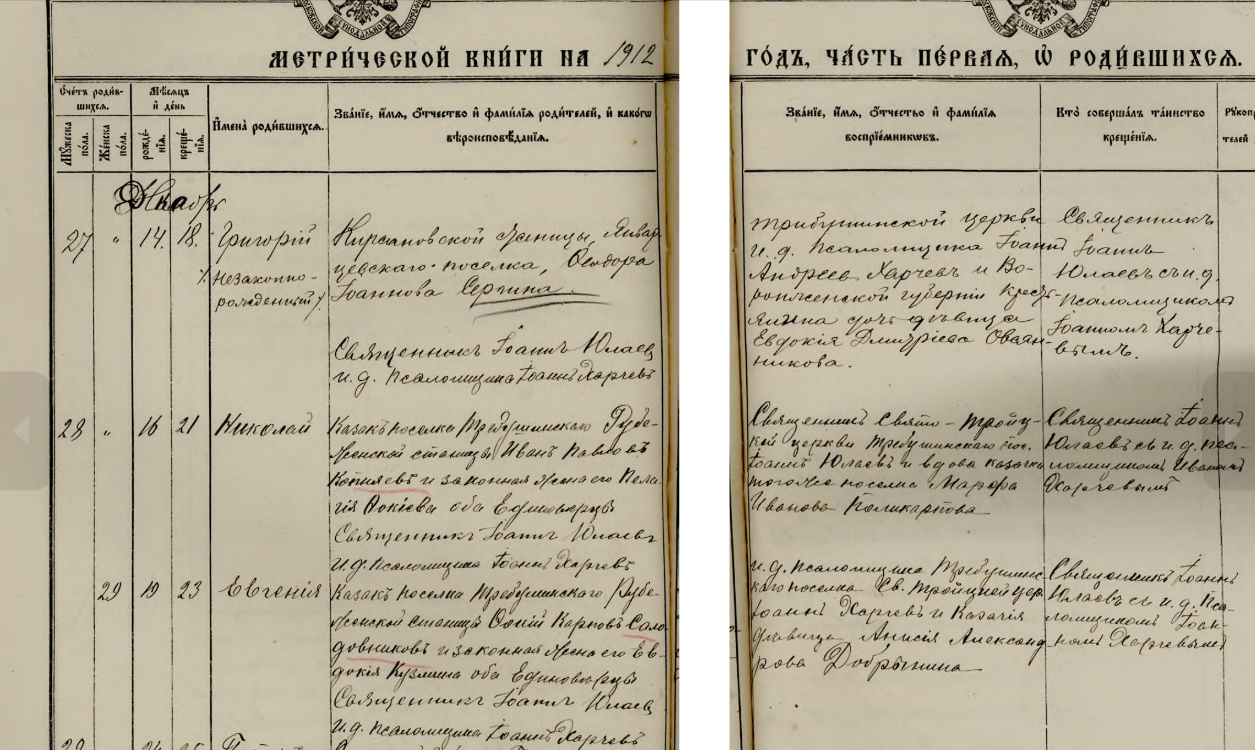 МЕТРИ́ЧЕСКОЙ КНИ́ГИ НА 1912
Счётъ роди́в-
шихсѧ.
Мѹ́жеска
по́ла.
Же́нска
по́ла.
Мѣ́сѧцъ
и҆ де́нь
рожде́-
нїѧ.
креще́-
нїѧ.
И҆мена̀ роди́вшихсѧ.
Зва́нїе, и҆́мѧ, ѻ҆́тчество и҆ фами́лїѧ роди́телей, и҆ како́гѡ
вѣроисповѣ́данїѧ.
Декабрь
27 " 14. 18. Григорій
Незаконно-
рожденный
Кирсановской станицы, Январ-
цевскаго поселка, Ѳеодора
Іоаннова Серпина.
Священникъ Іоаннъ Юлаевъ
и. д. псаломщика Іоаннъ Харчевъ
28 " 16 21 Николай
Казакъ поселка Требушинскаго Рубе-
женской станицы Иванъ Павловъ
Копняевъ и законная жена его Пела-
гія Фокіева оба Единовѣрцы
Священникъ Іоаннъ Юлаевъ
и. д. псаломщика Іоаннъ Харчевъ
29 19 23 Евгенія
Казакъ поселка Требушинскаго Рубе-
женской станицы Карповъ Соло-
довниковъ и законная жена его Ев-
докія Кузмина оба Единовѣрцы
Священникъ Іоаннъ Юлаевъ
и. д. псаломщика Іоаннъ Харчевъ
ГО́ДЪ, ЧА́СТЬ ПЕ́РВАЯ, Ѽ РОДИ́ВШИХСЯ.
Зва́нїе, и҆́мѧ, ѻ҆́тчество и҆ фами́лїѧ
воспрїе́мниковъ.
Кто̀ соверша́лъ та́инство
креще́нїѧ.
Рѹкопр
телей
Требушинской церкви
и. д. псаломщика Іоаннъ
Андреев Харчевъ и Во-
ронженской губерніи кресть-
янина дочь дѣвица
Евдокія Дмитріева Овсян-
никова.
Священникъ
Іоаннъ
Юлаевъ съ и. д.
псаломщикомъ
Іоанномъ Харче-
вымъ.
Священникъ Свято-Троиц-
кой церкви Требушинскаго пос.
Іоаннъ Юлаевъ и вдова казачка
того же поселка Марфа
Иванова Поликарпова
Священникъ Іоаннъ
Юлаевъ съ и. д. пса-
ломщикомъ Иваномъ
Харчевымъ
и. д. псаломщика Требушинс-
каго поселка Св. Троицкой цер.
Іоаннъ Харчевъ и Казачія
дѣвица Анисія Александ-
рова Добрынина
Священникъ Іоаннъ
Юлаевъ съ и. д. пса-
ломщикомъ Іоан-
номъ Харчевымъ